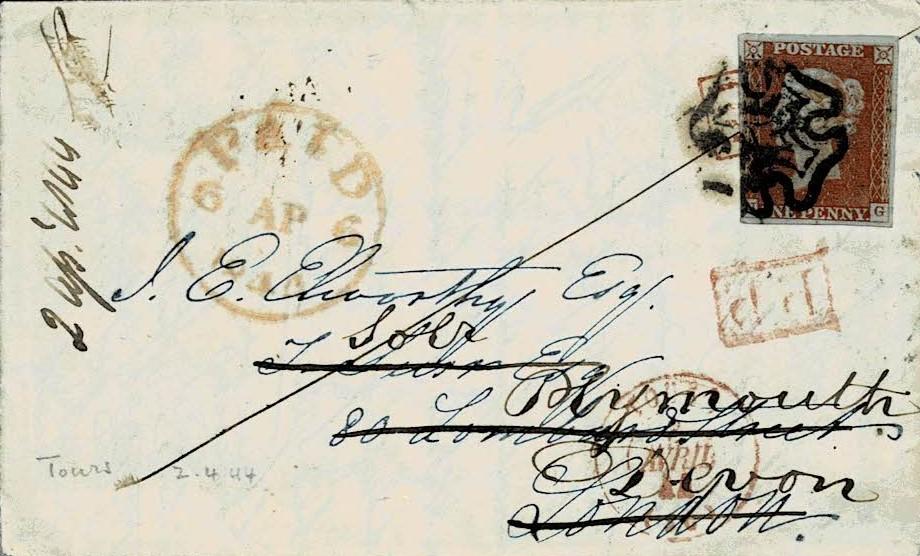 POSTAGE
ONE PENNY G
PAID
6 AP 6
P.P.
2 Ap. 1844
J. E. Elworthy Esq.
Solr
Plymouth
80 Lombard Street
AVRIL
Devon
London
Tours 2.4.44